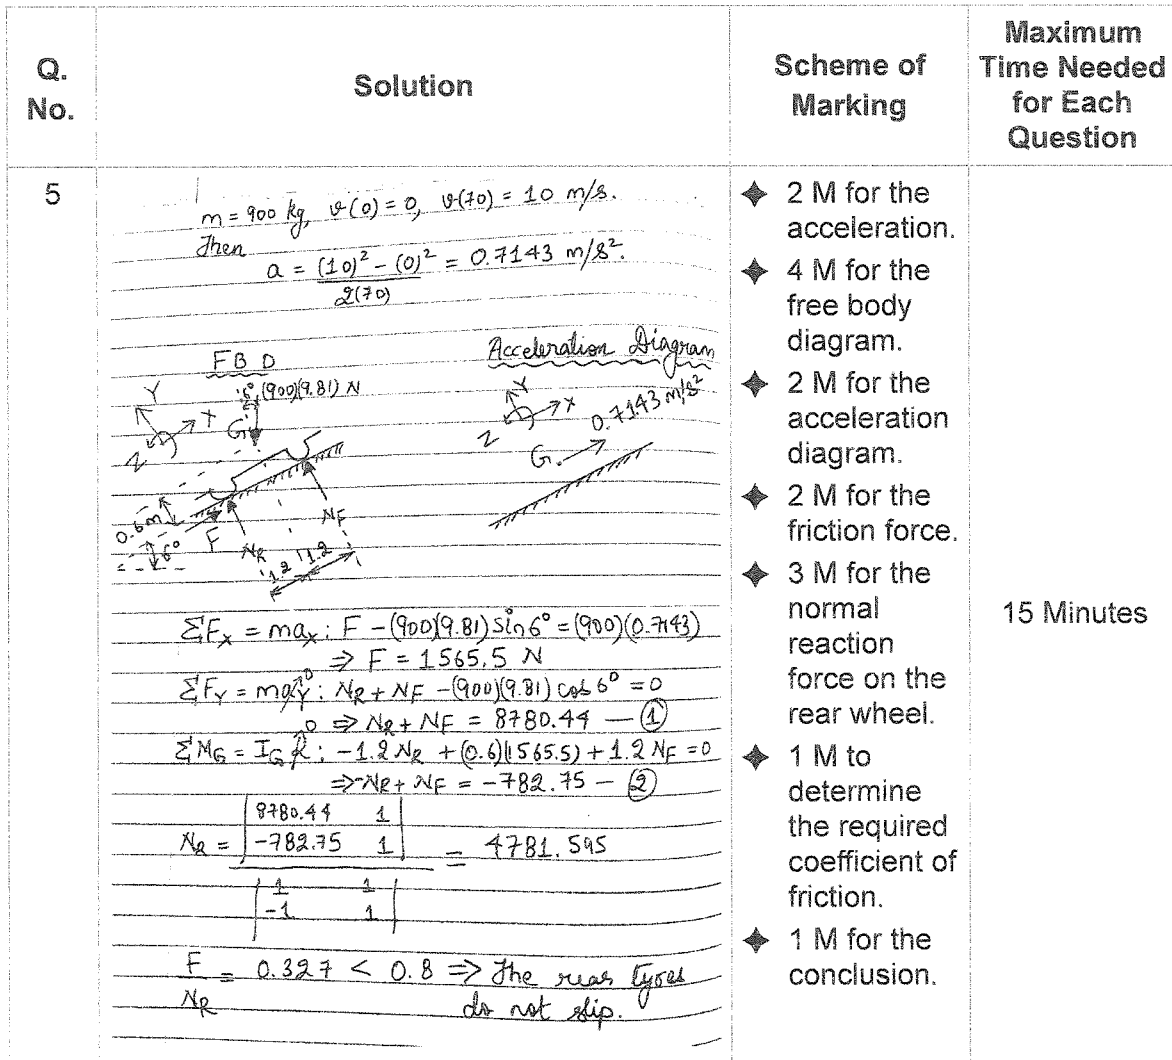 Q. No.
Solution
Scheme of Marking
Maximum Time Needed for Each Question
5
m = 900 kg, v(0) = 0, v(70) = 10 m/s.
Then
a = (10)² - (0)² = 0.7143 m/s².
2(70)
FBD
Acceleration Diagram
6° (900)(9.81) N
Y
X
Z
G
Y
X
Z
0.7143 m/s²
G.
0.6m
6°
F
NR
NF
1.2
1.2
ΣFx = max: F - (900)(9.81) sin 6° = (900)(0.7143)
⇒ F = 1565.5 N
ΣFY = maY⁰: NR + NF - (900)(9.81) cos 6° = 0
⇒ NR + NF = 8780.44 — ①
ΣMG = IG α⁰: -1.2 NR + (0.6)(1565.5) + 1.2 NF = 0
⇒ -NR + NF = -782.75 — ②
8780.44 1
NR = -782.75 1 = 4781.595
1 1
-1 1
F = 0.327 < 0.8 ⇒ The rear tyres
NR do not slip.
✦ 2 M for the
acceleration.
✦ 4 M for the
free body
diagram.
✦ 2 M for the
acceleration
diagram.
✦ 2 M for the
friction force.
✦ 3 M for the
normal
reaction
force on the
rear wheel.
✦ 1 M to
determine
the required
coefficient of
friction.
✦ 1 M for the
conclusion.
15 Minutes